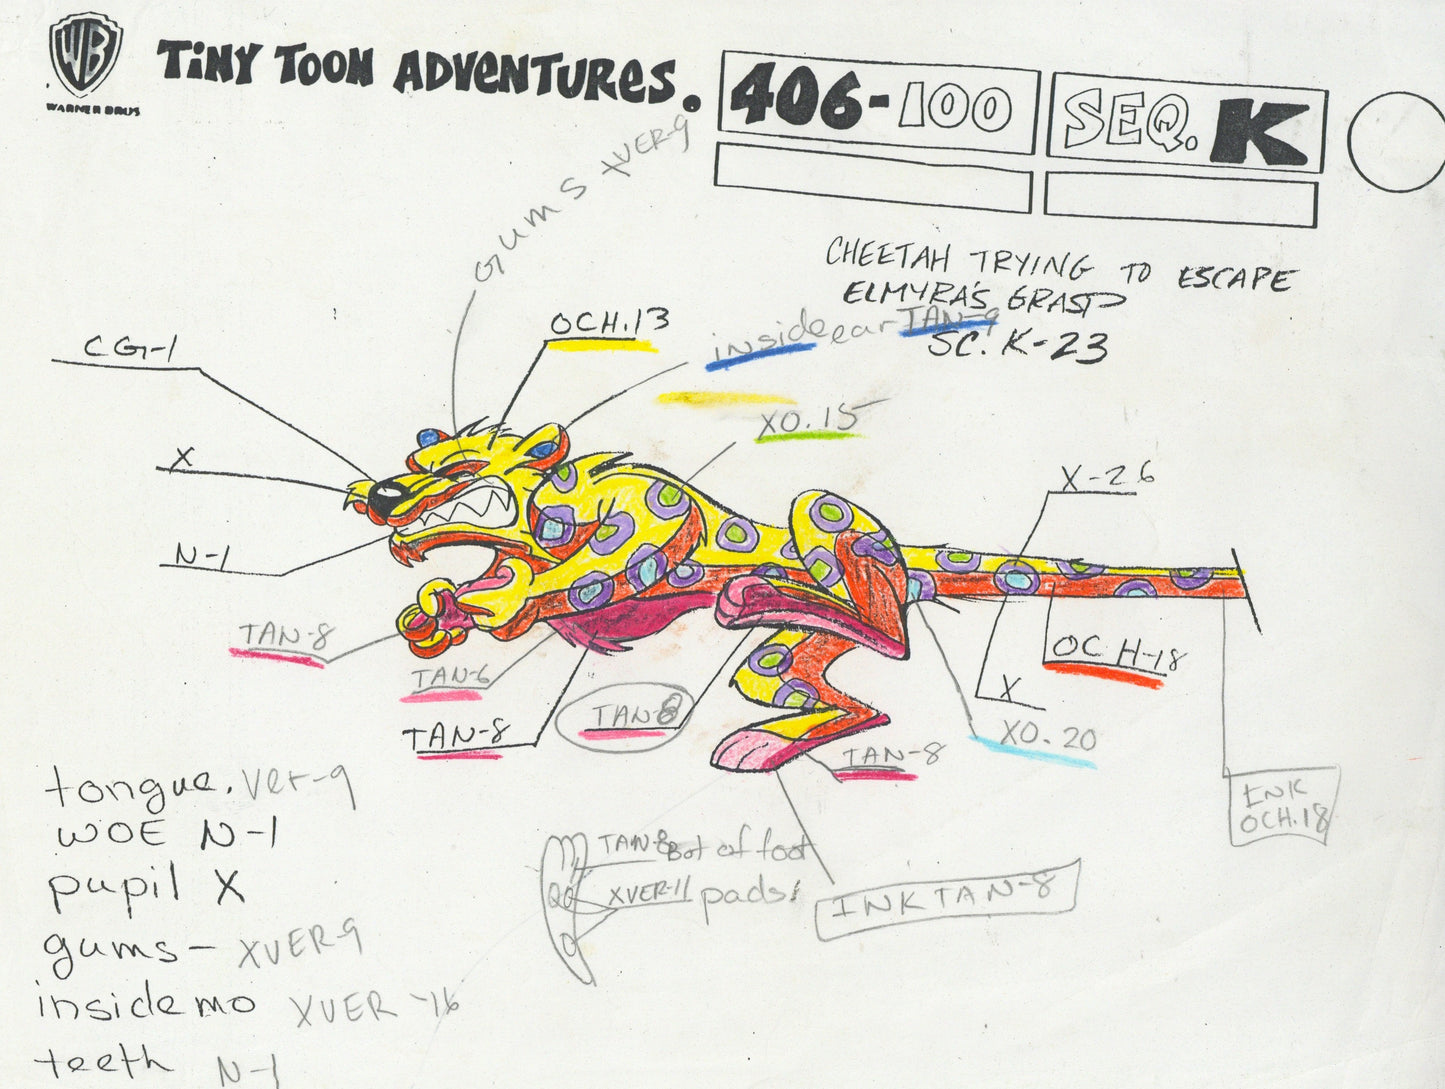 WB
WARNER BROS
TiNY TOON ADVENTURES.
406-100
SEQ. K
Gums XVER-9
CHEETAH TRYING TO ESCAPE
ELMYRA'S GRASP
SC. K-23
OCH.13
inside ear TAN-9
CG-1
XO.15
X
X-26
N-1
TAN-8
TAN-6
TAN-8
TAN-8
OCH-18
X
XO.20
TAN-8
INK
OCH.18
tongue. Ver-9
WOE N-1
pupil X
gums- XVER-9
inside mo XVER-16
teeth N-1
TAN-8 Bot of foot
XVER-11 pads
INK TAN-8